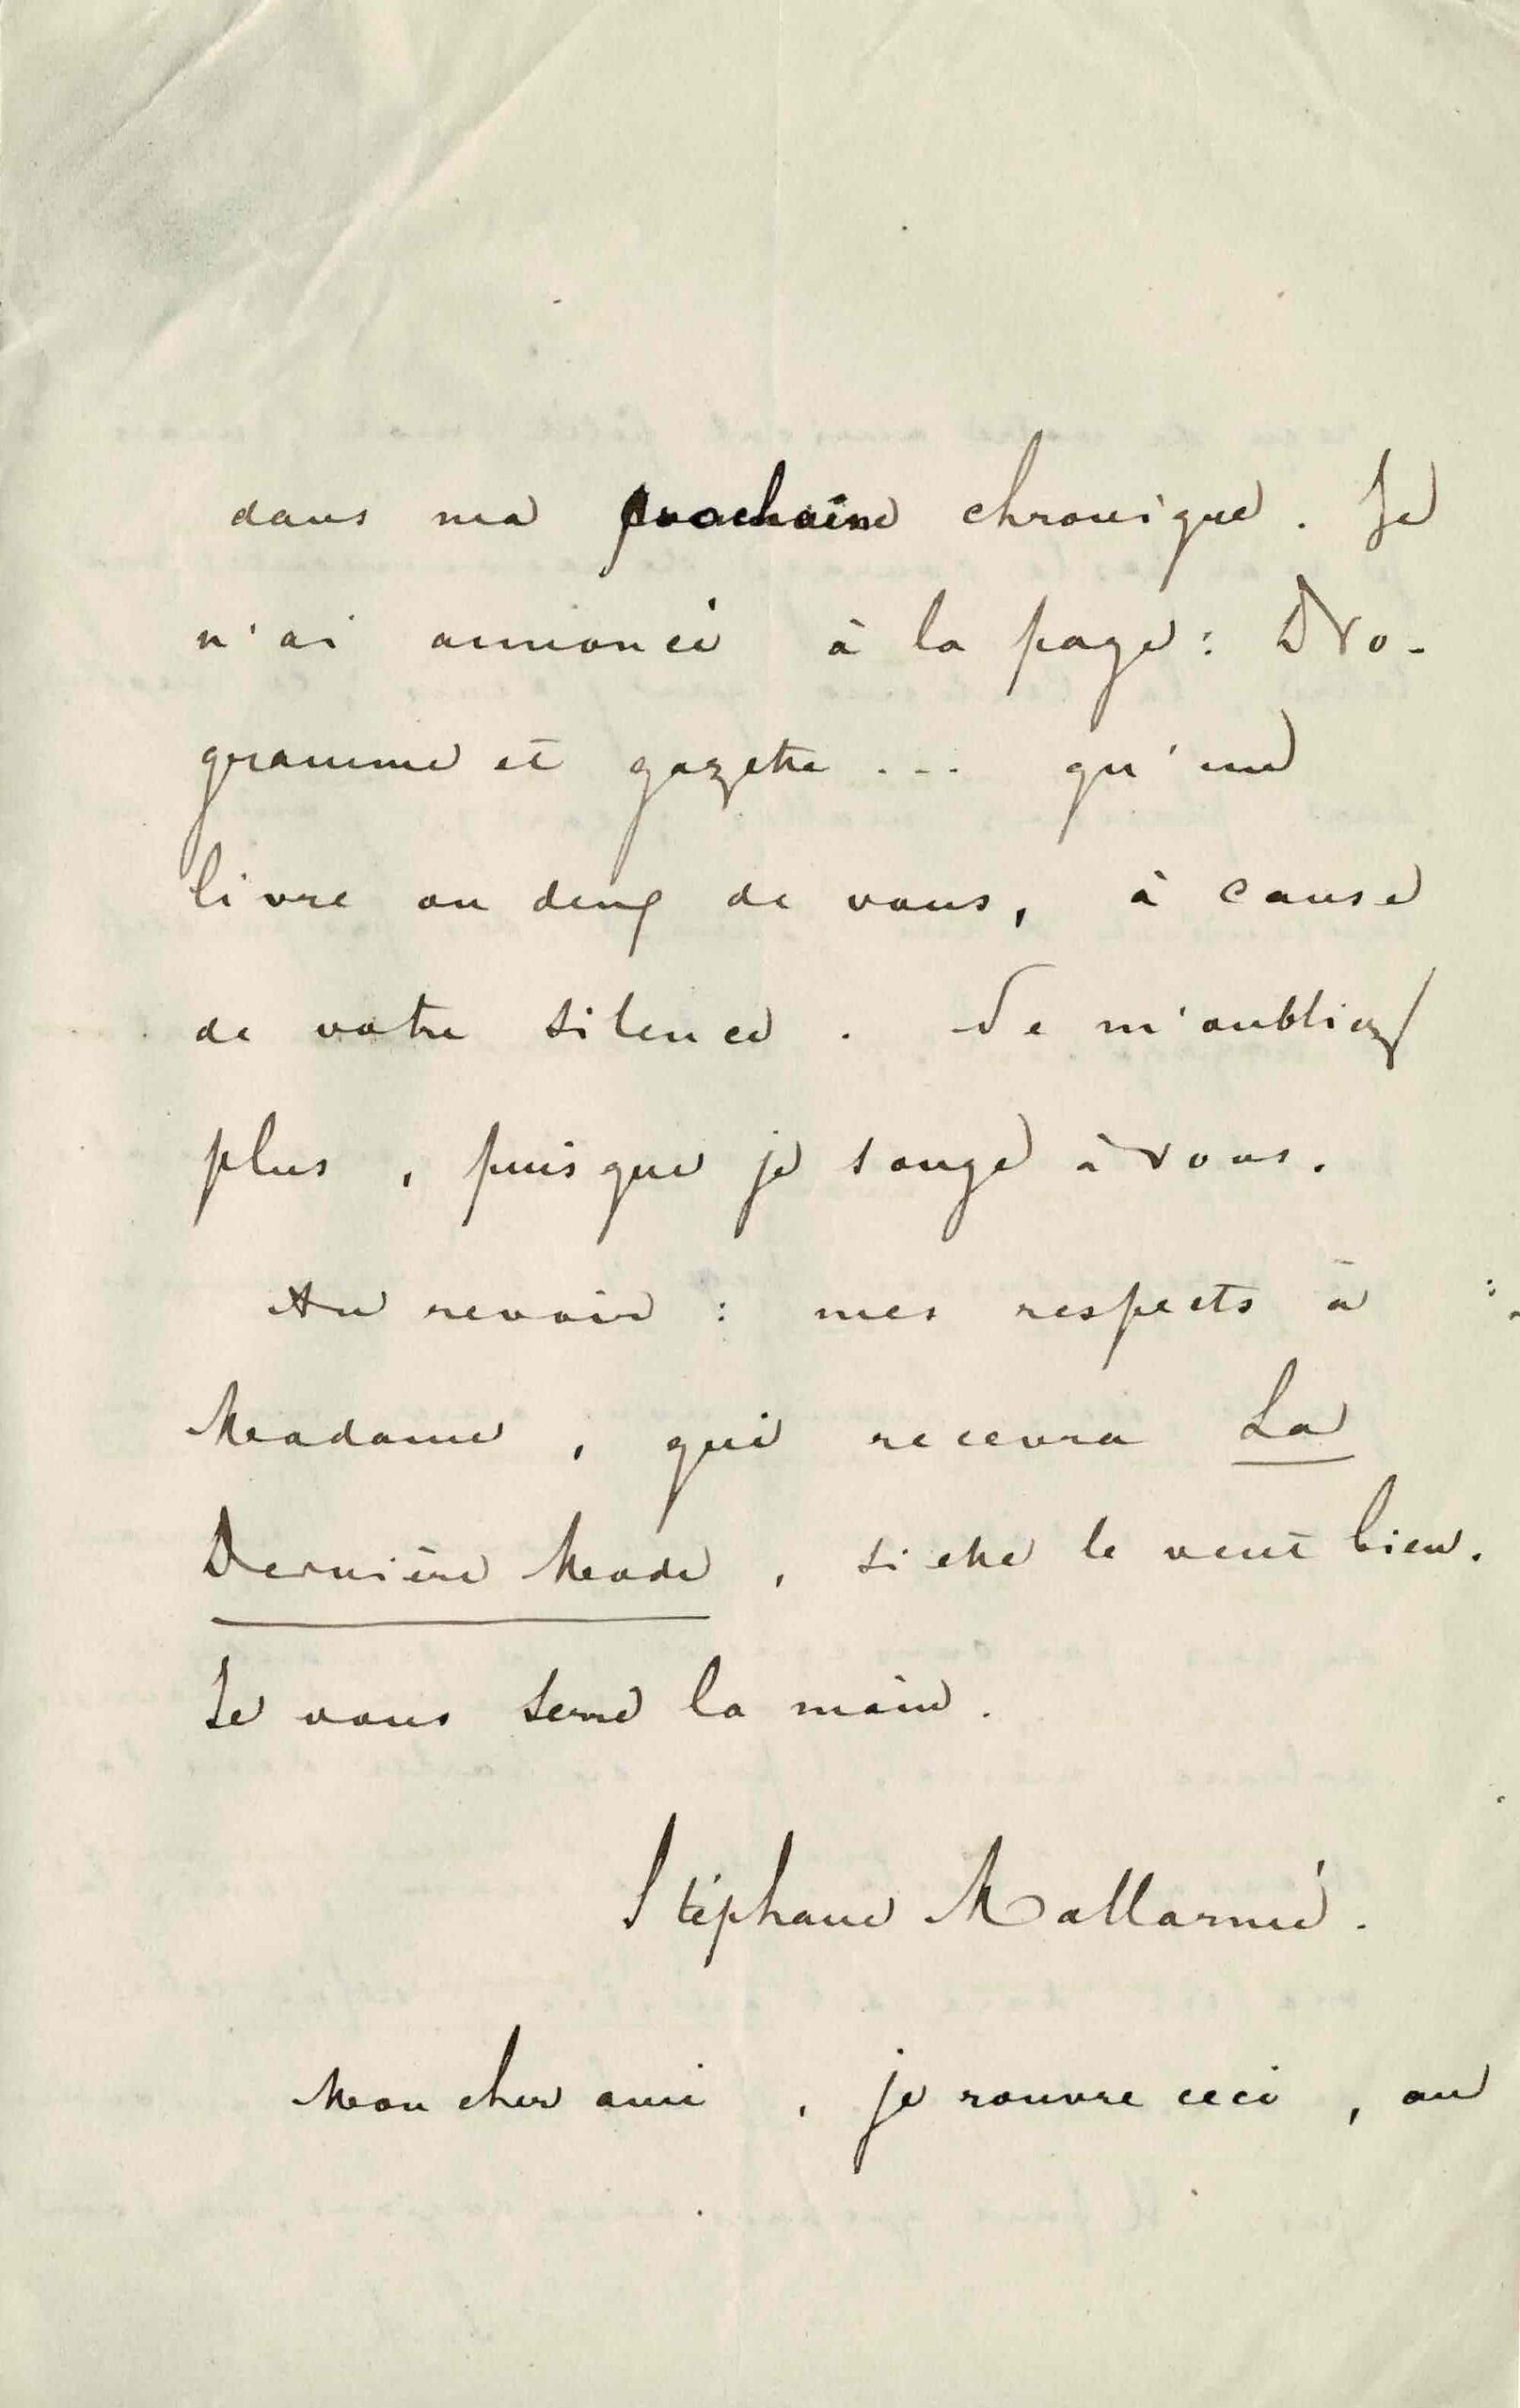 dans ma prochaine chronique. Je
n'ai annoncé à la page: Pro-
gramme et gazette ... qu'un
livre ou deux de vous, à cause
de votre silence. Ne m'oubliez
plus, puisque je songe à vous.
Au revoir : mes respects à
Madame, qui recevra La
Dernière Mode, si elle le veut bien.
Je vous serre la main.
Stéphane Mallarmé.
Mon cher ami, je rouvre ceci, au